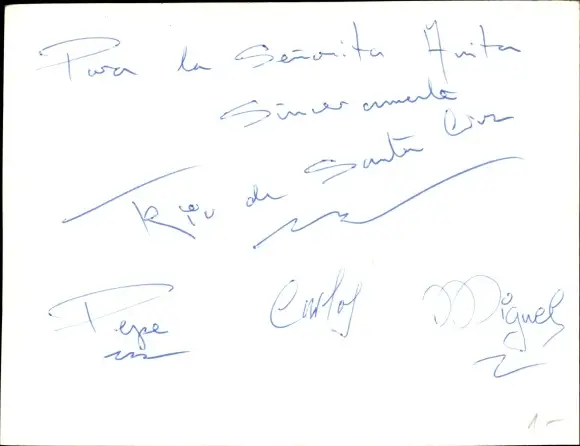 Para la Señorita Anita
Sinceramente
Trío de Santa Cruz
Pepe Carlos Miguel
1-